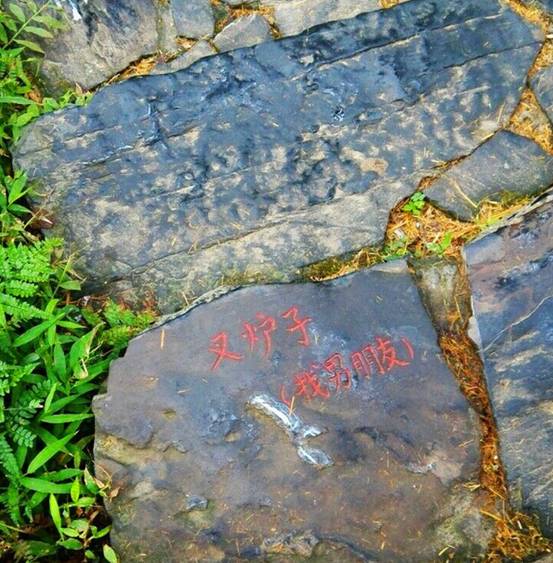 叉炉子
(我男朋友)